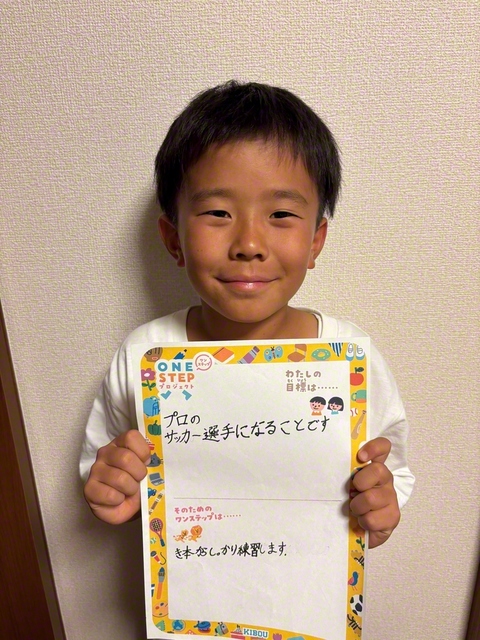 ONE
STEP
ワンステップ
プロジェクト
わたしの
もくひょう
目標は……
プロの
サッカー選手になることです
そのための
ワンステップは……
き本からしっかり練習します。
KIBOU